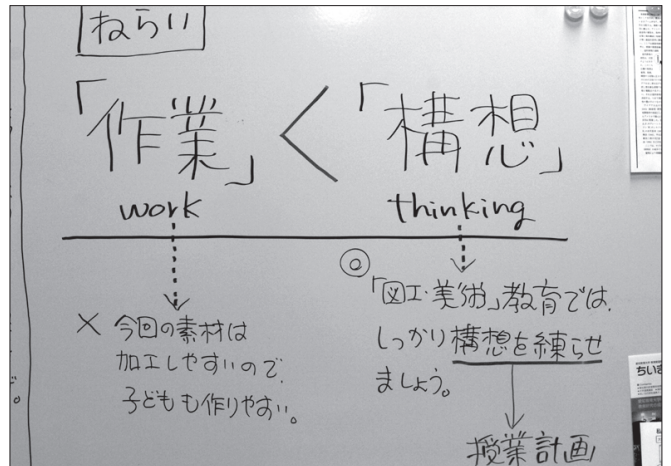 ねらい
「作業」<「構想」
work
thinking
× 今回の素材は
加工しやすいので、
子どもも作りやすい。
◎
「図工・美術」教育では、
しっかり構想を練らせ
ましょう。
授業計画
ちいき